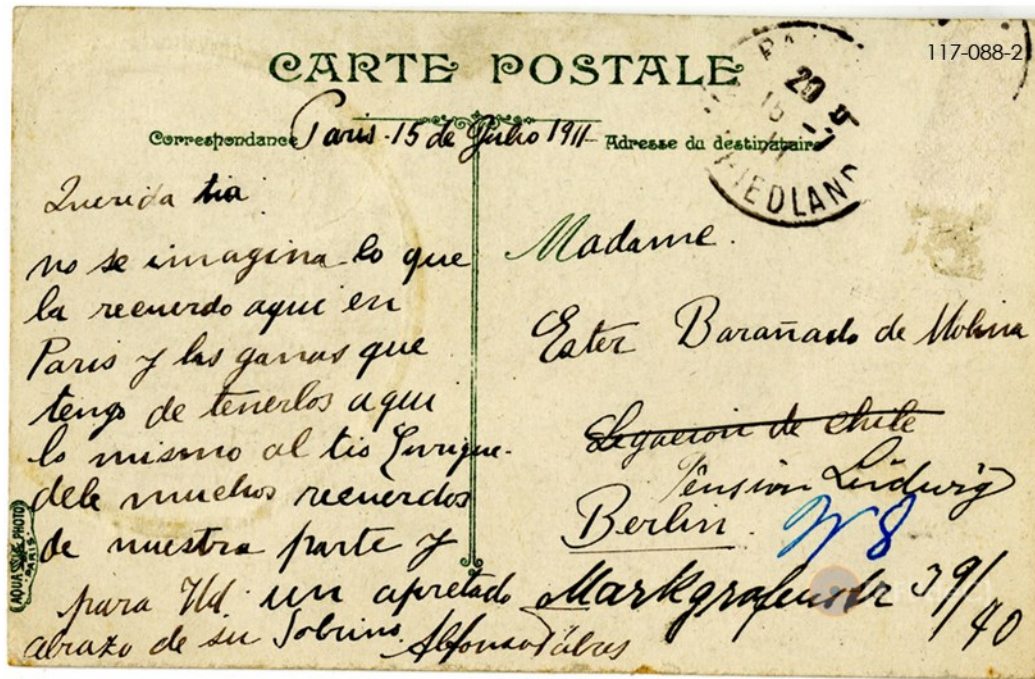 117-088-2
CARTE POSTALE
Correspondance
Adresse du destinataire
Paris-15 de Julio 1911-
Querida tia
no se imagina lo que
la recuerdo aqui en
Paris y las ganas que
tengo de tenerlos aqui
lo mismo al tio Enrique-
dele muchos recuerdos
de nuestra parte y
para Ud. un apretado
abrazo de su Sobrino.
Alfonso
20
FRIEDLAND
Madame.
Ester Barañado de Molina
Legacion de Chile
Pension Ludwig
Berlin. W 8
Markgrafenstr 39/40
AQUA PHOTO
PARIS